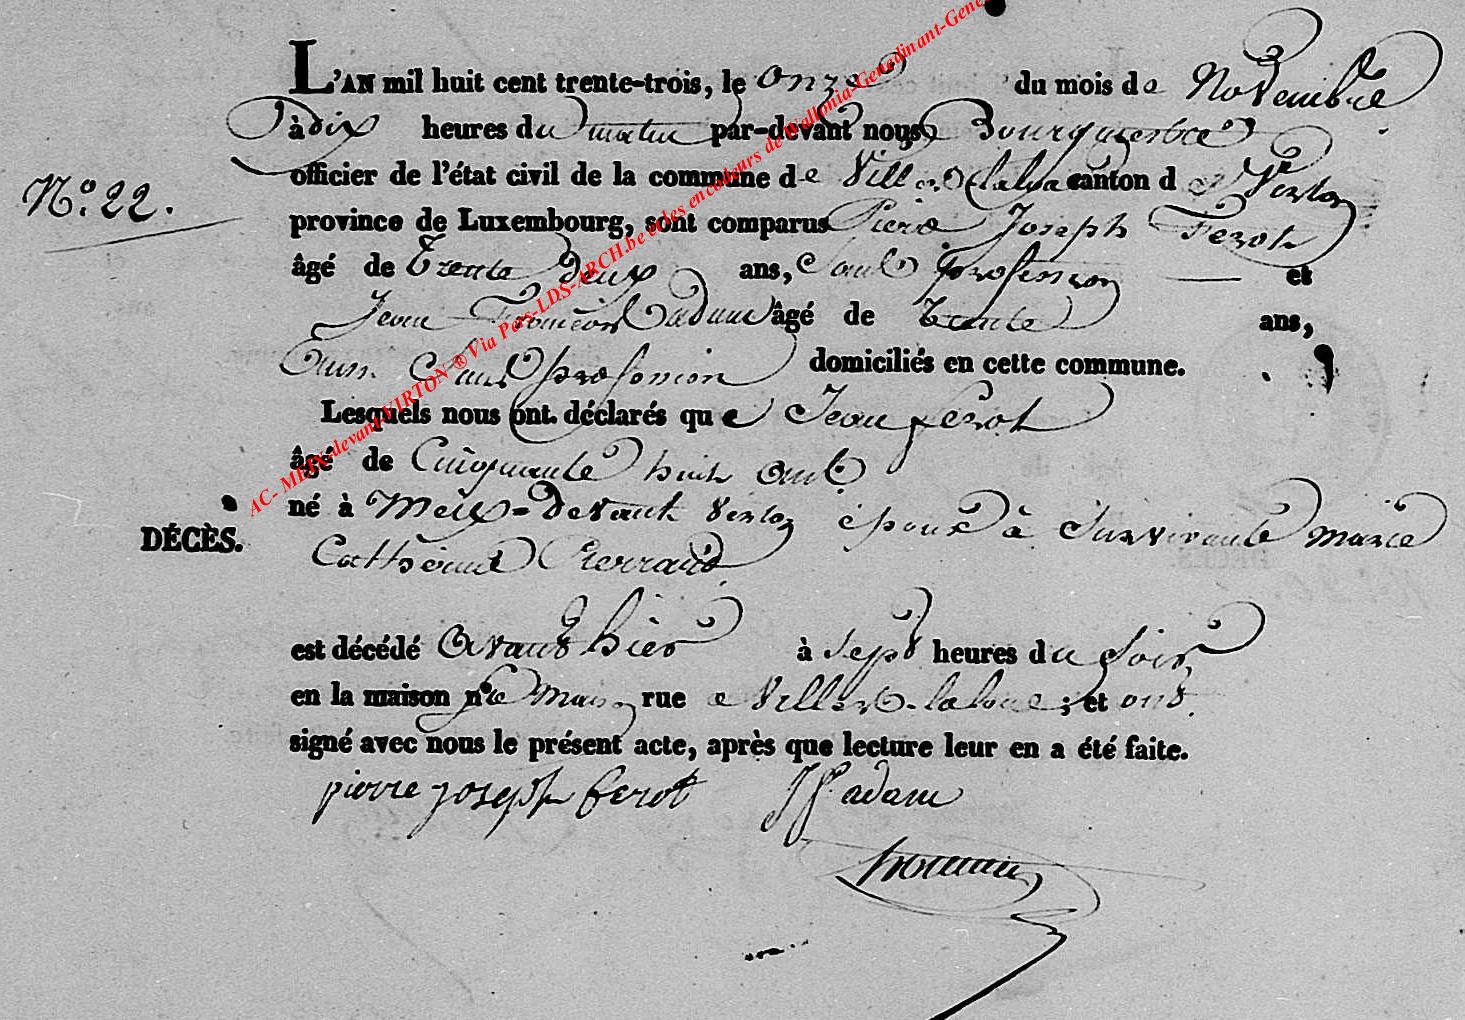 L'AN mil huit cent trente-trois, le onze du mois de Novembre
à dix heures du matin par-devant nous Bourguestre
officier de l'état civil de la commune de Villers-laloue canton de Virton
N.º 22.
province de Luxembourg, sont comparus Pierre Joseph Ferot
âgé de Trente deux ans, Sans profession et
Jean François adam âgé de trente ans,
Aussi Sans profession domiciliés en cette commune.
Lesquels nous ont déclarés que Jean ferot
âgé de Cinquante huit ans
né à Meix-devant Virton époux à Survivante marie
DÉCÈS.
Catherine
est décédé avant hier à sept heures du Soir
en la maison rue a Villers-laloue; et ont
signé avec nous le présent acte, après que lecture leur en a été faite.
pierre joseph ferot J f adam
AC- MEIX-devant-VIRTON ® Via Pers-LDS-ARCH.be et les encodeurs de Wallonia-Genedinant-Gene